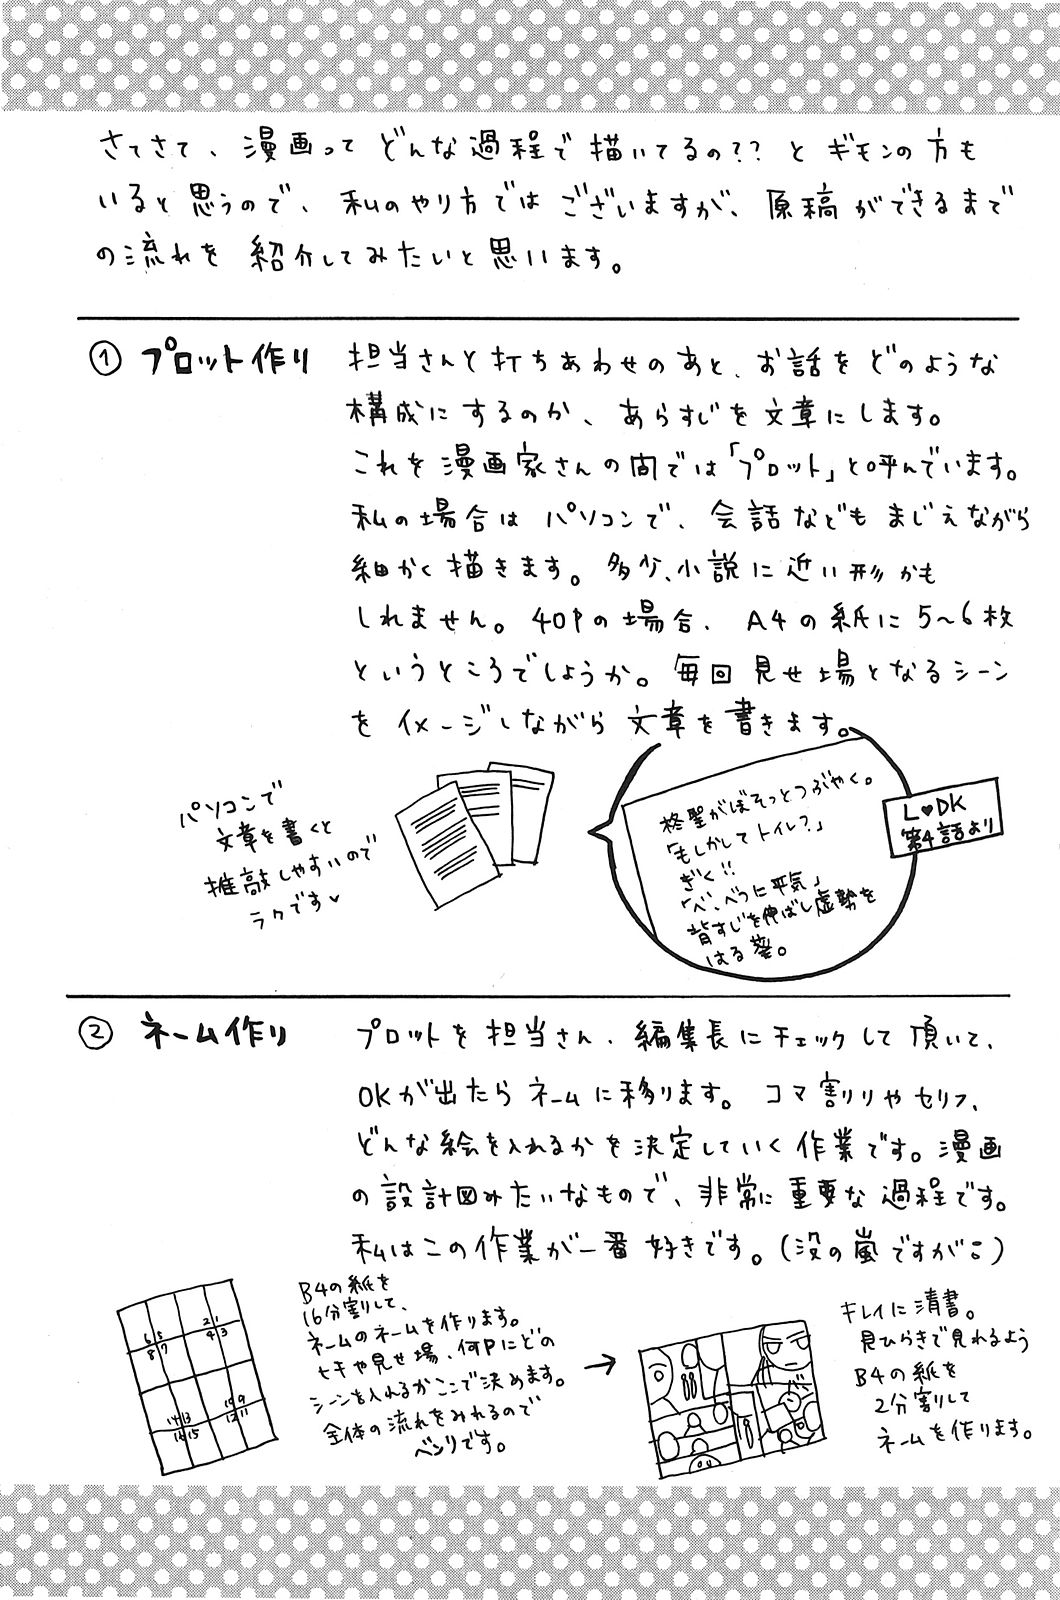 さてさて、漫画って どんな過程で描いてるの?? と ギモンの方も
いると思うので、私のやり方では ございますが、原稿ができるまで
の流れを 紹介してみたいと思います。
① プロット作り
担当さんと打ちあわせのあと、お話をどのような
構成にするのか、あらすじを文章にします。
これを漫画家さんの間では「プロット」と呼んでいます。
私の場合は パソコンで、会話などもまじえながら
細かく描きます。多少、小説に近い形かも
しれません。40Pの場合、A4の紙に5~6枚
というところでしょうか。毎回見せ場となるシーン
を イメージしながら 文章を書きます。
パソコンで
文章を書くと
推敲しやすいので
ラクです♥
柊聖がぼそっとつぶやく。
「もしかしてトイレ?」
ぎく!!
「べ、べつに平気」
背すじを伸ばし虚勢を
はる葵。
L♥DK
第4話より
② ネーム作り
プロットを担当さん、編集長にチェックして頂いて、
OKが出たらネームに移ります。コマ割りやセリフ、
どんな絵を入れるかを決定していく作業です。漫画
の設計図みたいなもので、非常に重要な過程です。
私はこの作業が一番好きです。(没の嵐ですが)
B4の紙を
16分割して、
ネームのネームを作ります。
七キや見せ場、何Pにどの
シーンを入れるかここで決めます。
全体の流れをみれるので
ベンリです。
6 5 2 1
8 7 4 3
14 13 10 9
16 15 12 11
→
キレイに清書。
見ひらきで見れるよう
B4の紙を
2分割して
ネームを作ります。